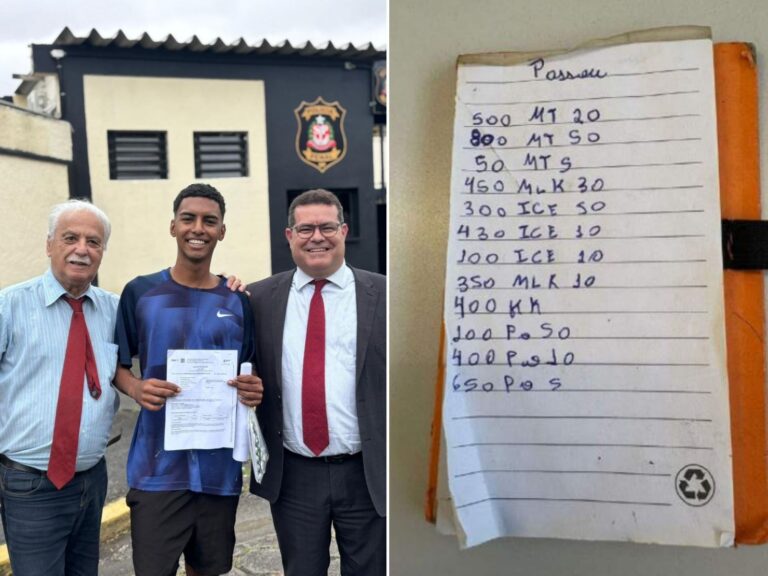 Passou
500 MT 20
800 MT 50
50 MT 5
450 MLK 30
300 ICE 50
430 ICE 10
100 ICE 10
350 MLK 10
400 KK
100 Po 50
400 Po 10
650 Po 5